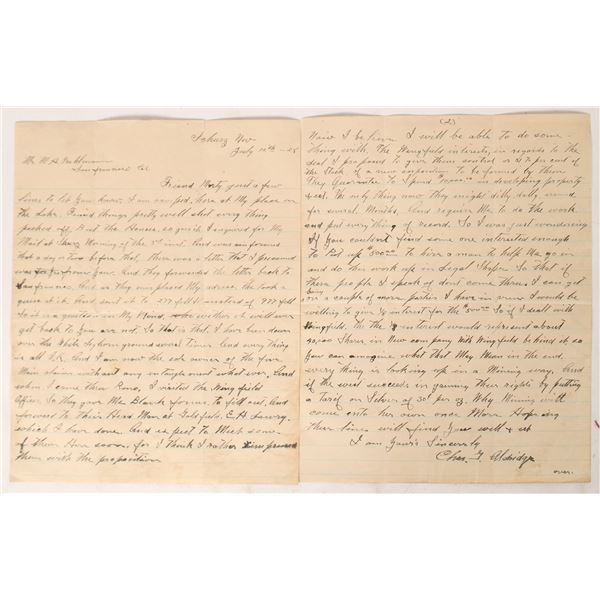 Schurz Nev
July 12th - 28
Mr. W. H.
San Francisco Cal
Friend Morty just a few
lines to let you know I am
here at My place on
the Lake. Found things pretty well shot every thing
packed off But the Houses, as quick I inquired for My
Mail at Morning of the 1st inst. And was informed
that a day or two before that, there was a letter that I presumed
was from you. And they forwarded the letter back to
San Francisco. And as they misplaced My adress. She took a
guess at it. And sent it to 277 fell instead of 777 fell
So it is a question in My Mind, whether it will ever
get back to you are not. So that is that. I have been down
over the White ground several times. And every thing
is all O.K. And I am now the sole owner of the five
Main claims without any entanglement what ever. And
when I came thru Reno, I visited the Wingfield
Office. So they gave Me Blank forms to fill out. And
forward to their Head Man at Goldfield. E.H.
which I have done. And expect to Meet some
of them Here soon, for I think I rather impressed
them with the proposition
(2)
Now I believe I will be able to do some-
thing with the Wingfield interests, in regards to the
deal I proposed to give them control or 51% per cent of
the stock of a new corporation to be formed by them
They Guarantee to Spend in developing property
& ect. The only thing now they might dilly dally around
for several Months. And require Me to do the work
and put every thing of record. So I was just wondering
if you couldn't find some one interested enough
to Put up $500.00 to hire a man to help Me go on
and do this work up in Legal Shape. So that if
these people I speak of dont come thru. I can get
on a couple of more parties I have in view I would be
willing to give interest for the $500.00 So if I dealt with
Wingfield. The interest would represent about
Shares in New company with Wingfield behind it so
you can imagine what that May Mean in the end.
every thing is looking up in a Mining way. And
if the west succeeds in gaining their rights by putting
a Tarif on Silver of 30¢ per oz. Why Mining will
come into her own once More Hoping
these lines will find you well & ect
I am Yours Sincerely
Chas. F. Aldridge
over.